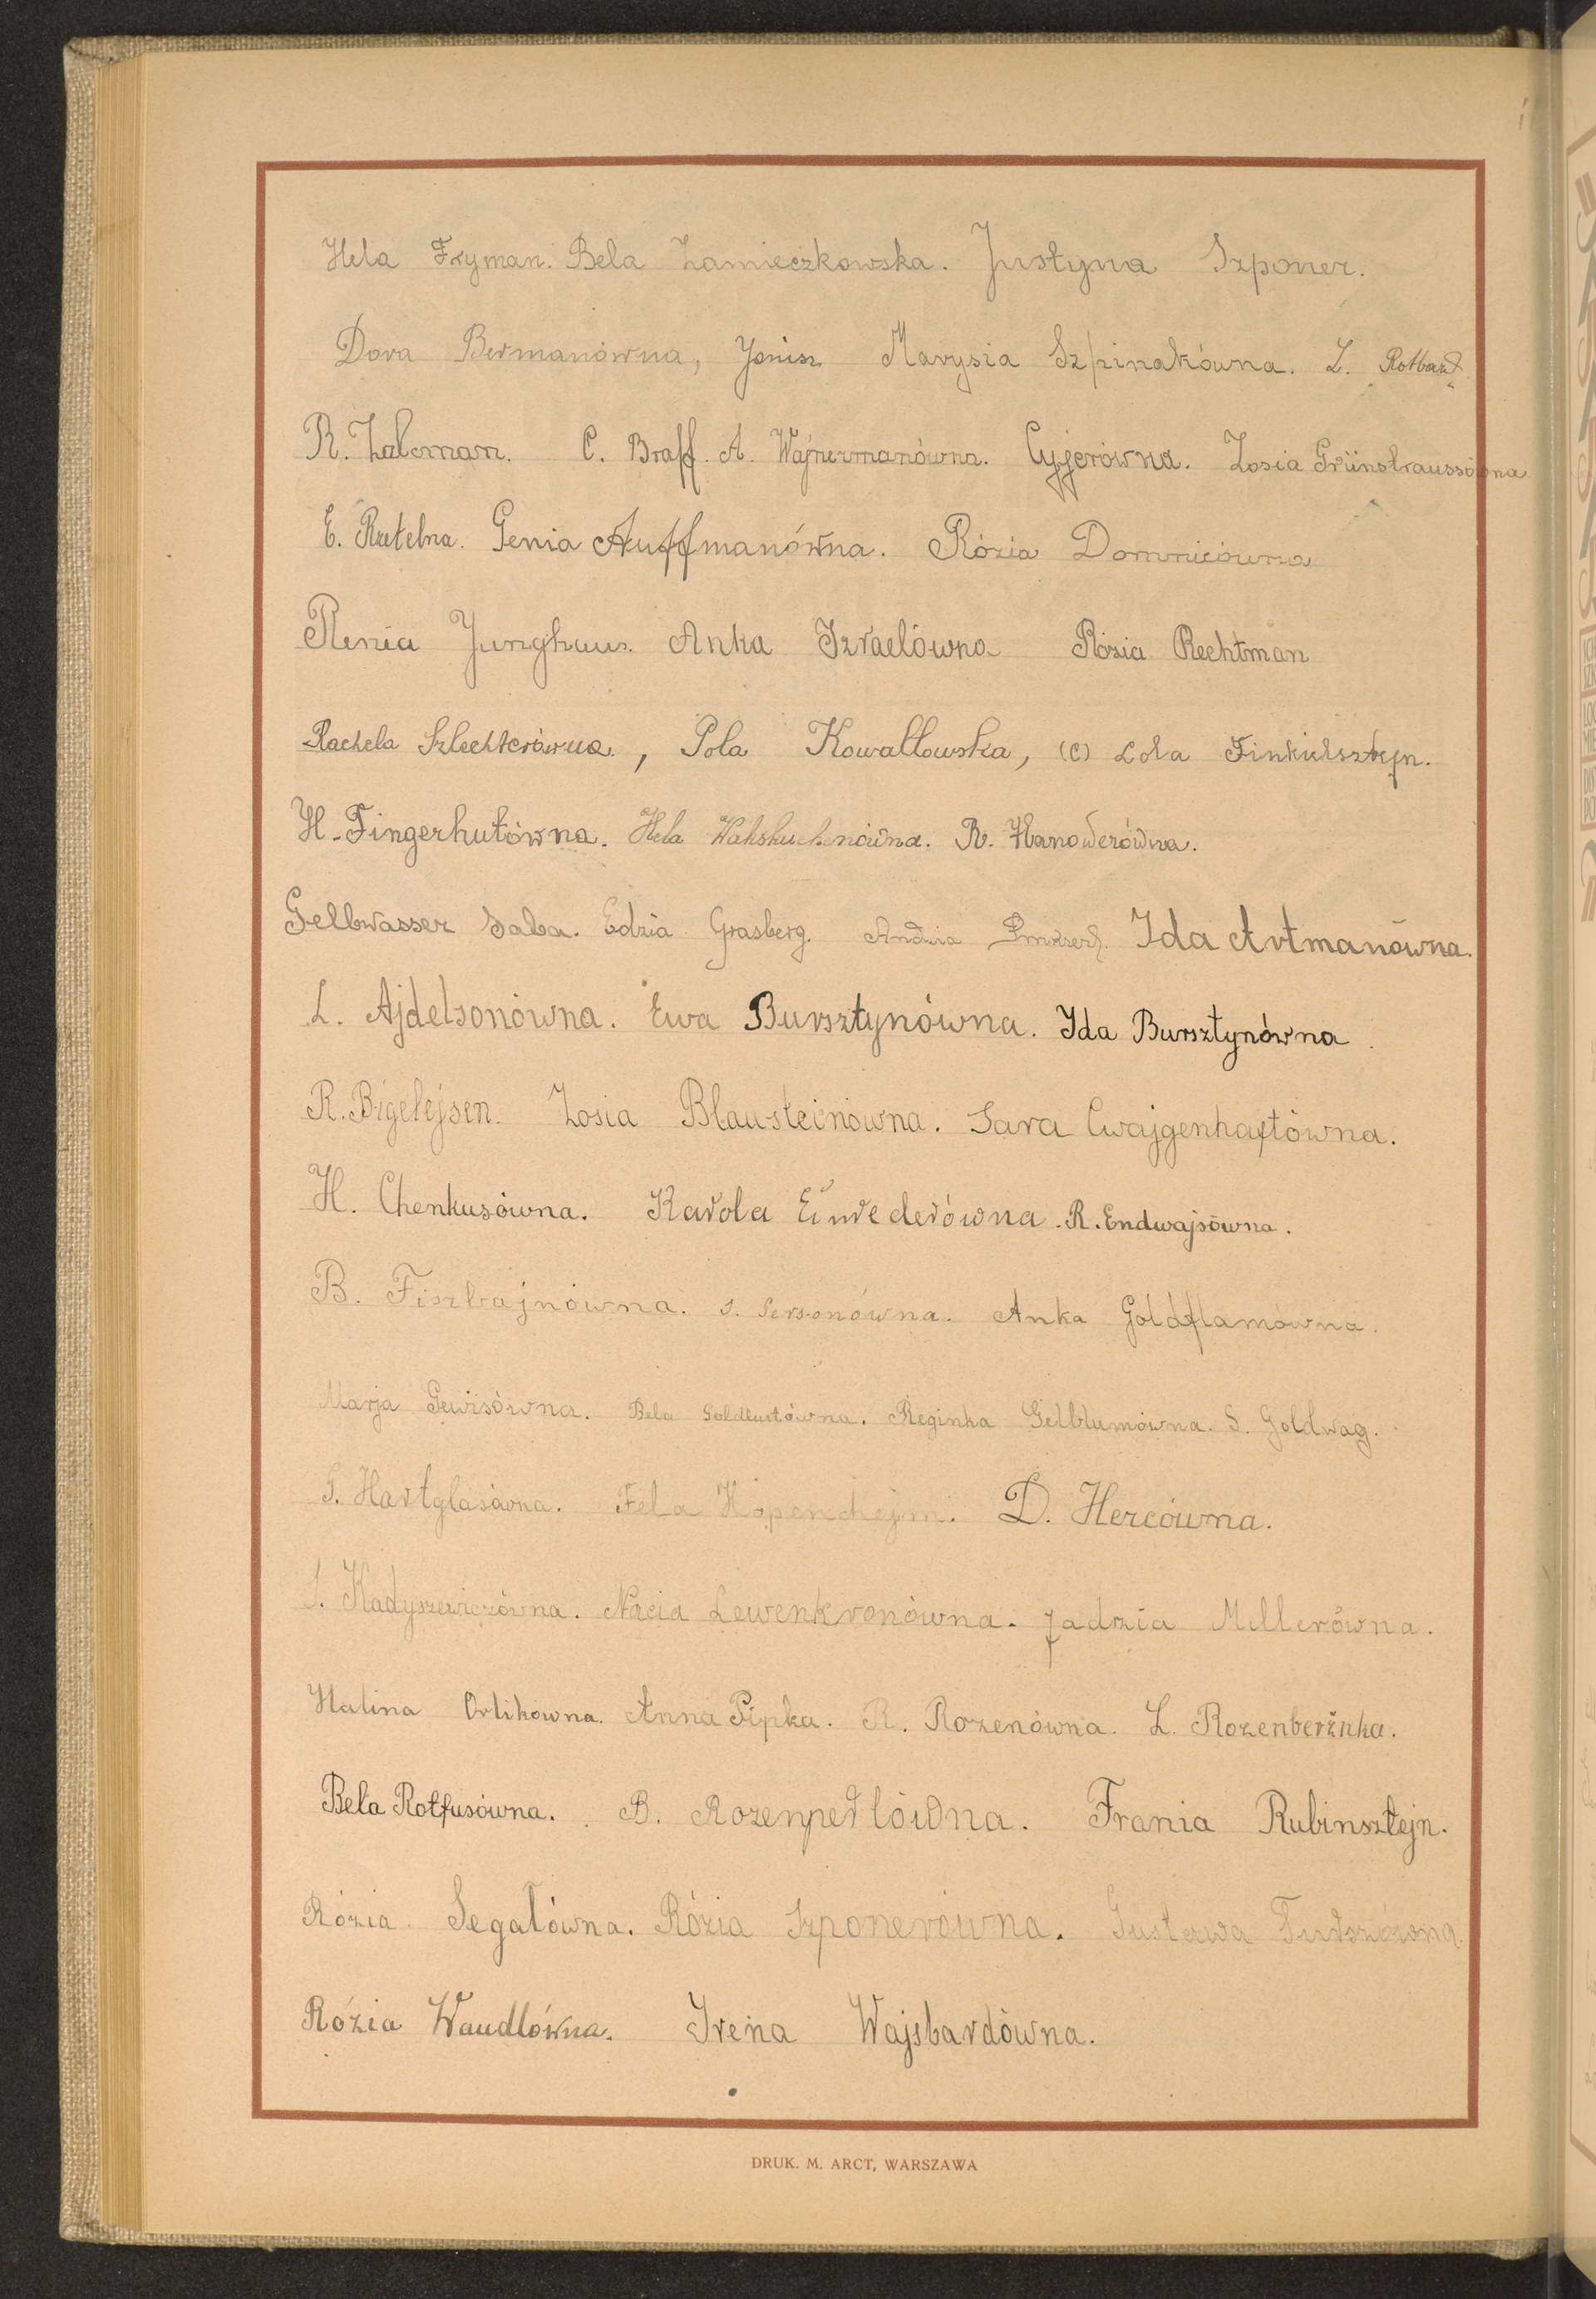 Hela Fryman. Bela Zamieczkowska. Justyna Szponer.
Dora Bermanówna, Marysia Szpinakówna. L. Rotbard
R. Zalcman. C. Braff. A. Wajnermanówna. Cyjerówna. Zosia Grünstraussówna
E. Rzetelna. Genia Auffmanówna. Rózia Domnicówna
Renia Junghaus. Anka Izraelówna Rózia Rechtman
Rachela Szlechterówna., Pola Kowallowska, (C) Lola Finkielsztejn.
H. Fingerhutówna. Hela R. Hanowerówna.
Gelbwasser Saba. Edzia Grasberg. Andzia Ida Artmanówna.
L. Ajdelsonówna. Ewa Bursztynówna. Ida Bursztynówna.
R. Bigelejsen. Zosia Blausteinówna. Sara Cwajgenhaftówna.
H. Chenkusówna. Karola R. Endwajsówna.
B. Fiszbajnówna. Anka Goldflamówna.
Marja Gewisówna. Bela Goldlustówna. Reginka Gelblumówna. S. Goldwag.
S. Hartglasówna. Fela Hopenchejm. D. Hercówna.
S. Kadyszewiczówna. Nacia Lewenkronówna. Jadzia Millerówna.
Halina Orlikówna. Anna Pipka. R. Rozenówna. L. Rozenberżnka.
Bela Rotfusówna. B. Rozenperlówna. Frania Rubinsztejn.
Rózia Segałówna. Rózia Szponerówna. Gustawa
Rózia Waudlówna. Irena Wajsbardówna.
DRUK. M. ARCT, WARSZAWA